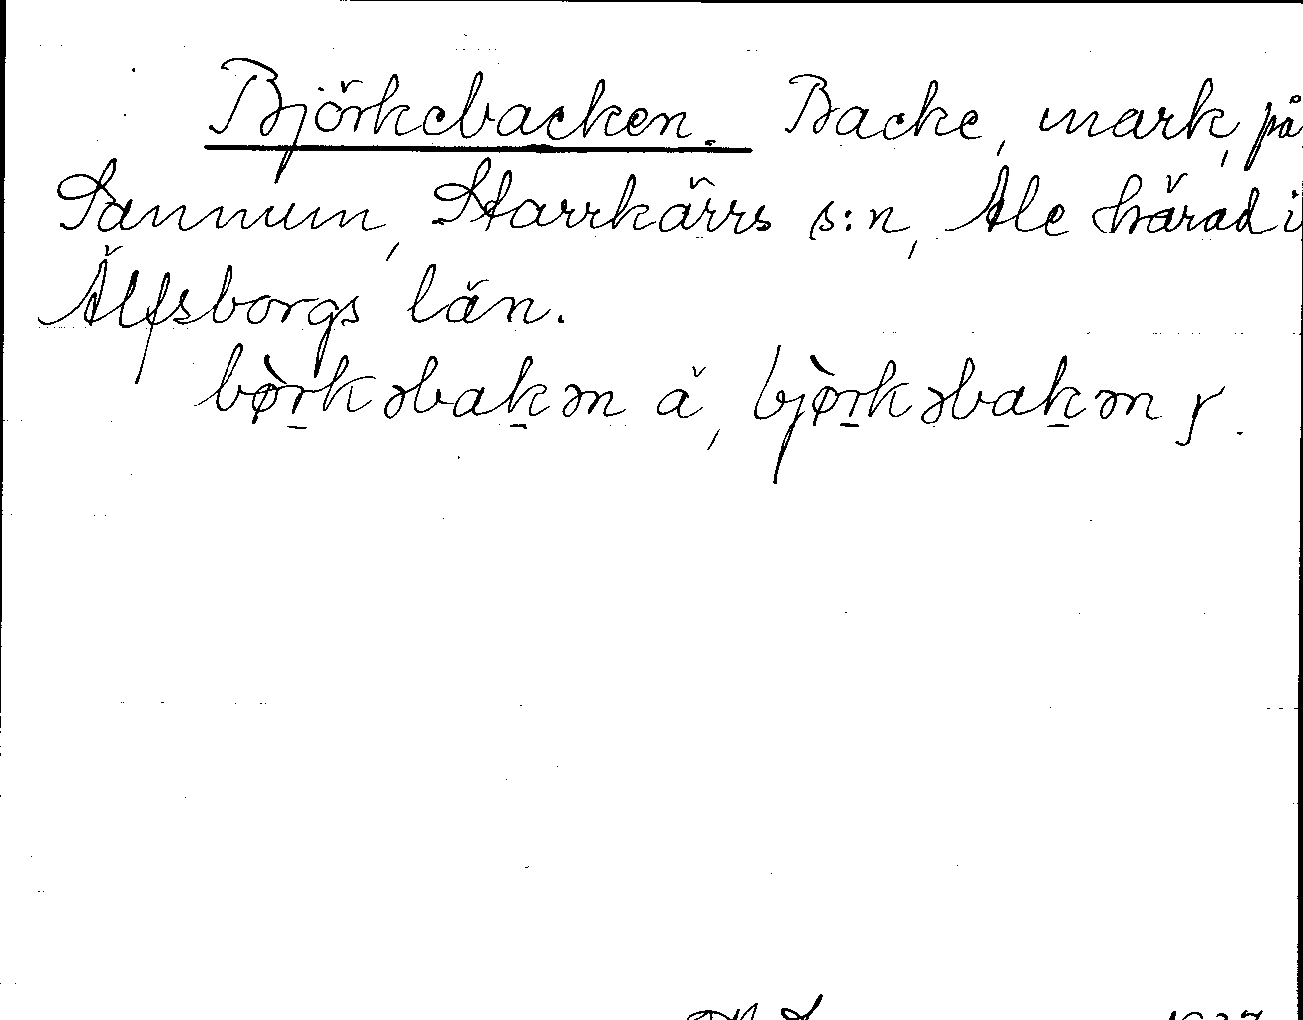 Björkebacken. Backe, mark, på
Sannum, Starrkärrs s:n, Ale härad i
Älfsborgs län.
bø̀rkəbakən ä, bjø̀rkəbakən y.